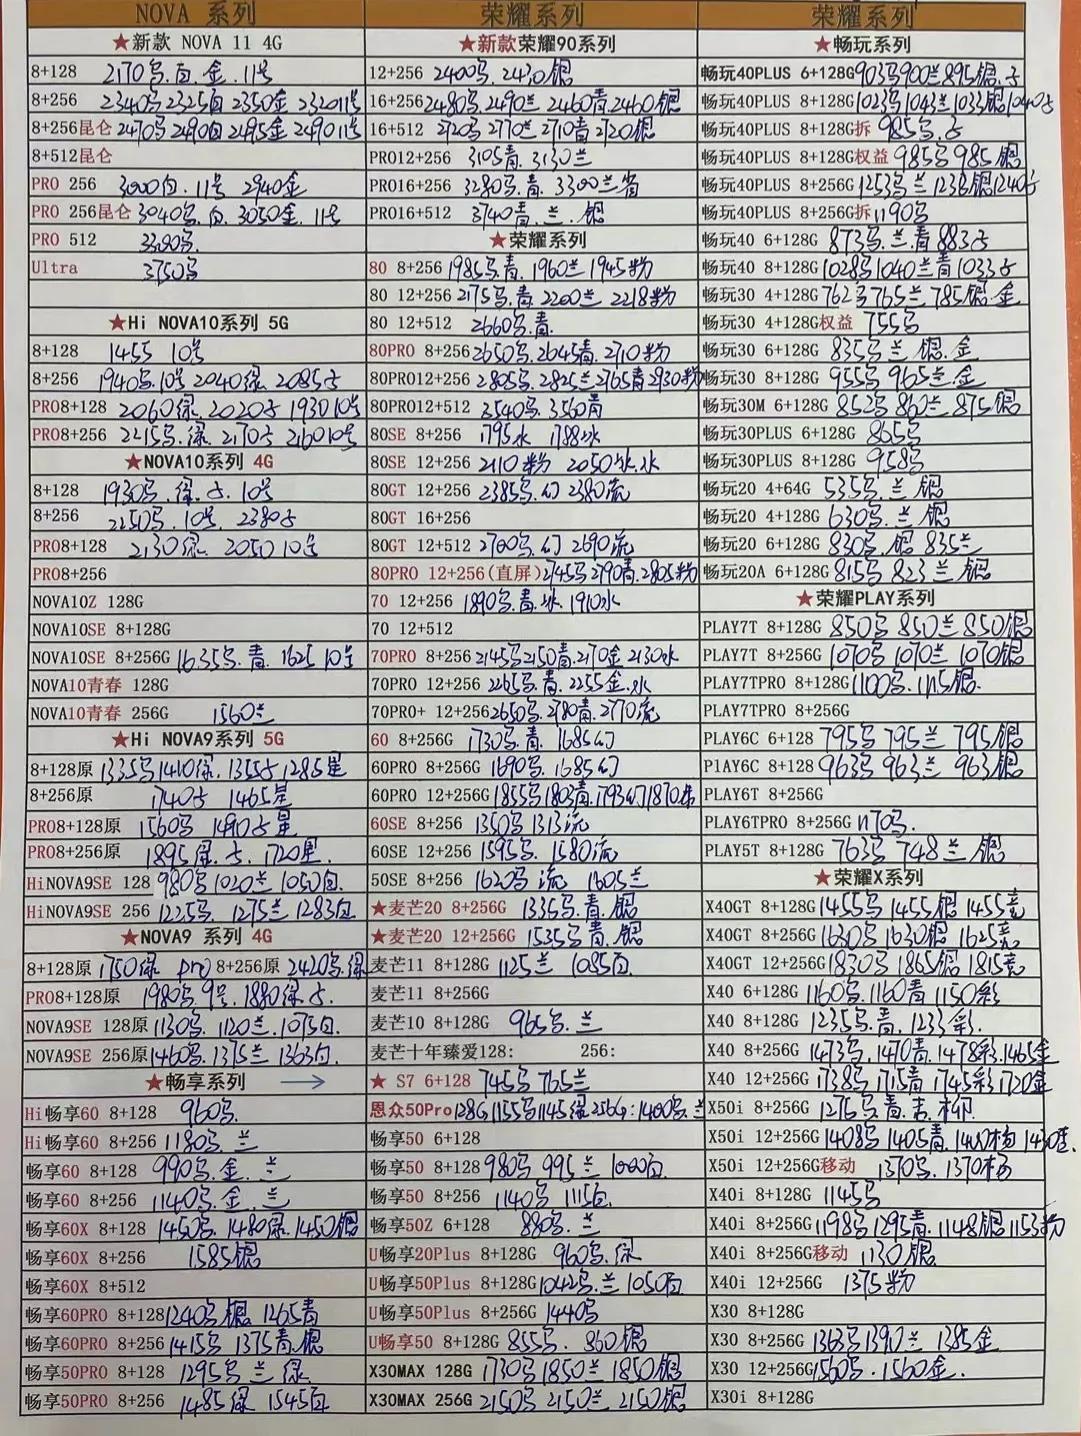 NOVA 系列
★新款 NOVA 11 4G
8+128 2170乌.白.金.11号
8+256 2340乌2325白2350金232011号
8+256昆仑 2470乌2490白2495金249011号
8+512昆仑
PRO 256 3000白.11号 2940金
PRO 256昆仑 3040乌.白.3050金.11号
PRO 512
Ultra 3750乌
★Hi NOVA10系列 5G
8+128 1455 10号
8+256 1940乌.10号2040绿.2085子
PRO8+128 2060绿.2020子 193010号
PRO8+256 2215乌.绿.2170子 216010号
★NOVA10系列 4G
8+128 1930乌.绿.子.10号
8+256 2250乌.10号.2380子
PRO8+128 2130绿.205010号
PRO8+256
NOVA10Z 128G
NOVA10SE 8+128G
NOVA10SE 8+256G 1635乌.青.162510号
NOVA10青春 128G
NOVA10青春 256G 1560兰
★Hi NOVA9系列 5G
8+128原 1335乌1410绿.1355子1285星
8+256原 1740子 1465星
PRO8+128原 1560乌 1490子星
PRO8+256原 1895绿.子.1720星.
HiNOVA9SE 128 980乌1020兰1050白.
HiNOVA9SE 256 1225乌.1275兰1283白
★NOVA9 系列 4G
8+128原 1750绿 pro 8+256原 2420乌.绿
PRO8+128原 1980乌.9号.1880绿.子.
NOVA9SE 128原 1130乌.1120兰.1075白.
NOVA9SE 256原 1460乌.1375兰1363白.
★畅享系列 →
Hi畅享60 8+128 960乌.
Hi畅享60 8+256 1180乌.兰
畅享60 8+128 990乌.金.兰
畅享60 8+256 1140乌.金.兰
畅享60X 8+128 1450乌.1480绿.1450银
畅享60X 8+256 1585银
畅享60X 8+512
畅享60PRO 8+128 1240乌银 1265青
畅享60PRO 8+256 1415乌 1375青.银
畅享50PRO 8+128 1295乌兰绿
畅享50PRO 8+256 1485绿 1545白
荣耀系列
★新款荣耀90系列
12+256 2400乌.2430银
16+256 2480乌.2490兰2460青.2460银
16+512 2720乌2770兰2710青2720银
PRO12+256 3105青.3130兰
PRO16+256 3280乌.青.3300兰
PRO16+512 3740青.兰.银
★荣耀系列
80 8+256 1985乌.青.1960兰1945粉
80 12+256 2175乌.青2200兰 2218粉
80 12+512 2660乌.青.
80PRO 8+256 2650乌.2645青.2710粉
80PRO12+256 2805乌.2825兰2765青2930粉
80PRO12+512 3540乌.3560青
80SE 8+256 1795水 1788冰
80SE 12+256 2110粉 2050冰.水
80GT 12+256 2385乌.幻2380流
80GT 16+256
80GT 12+512 2700乌.幻2690流
80PRO 12+256(直屏) 2745乌2790青.2805粉
70 12+256 1890乌.青.冰.1910水
70 12+512
70PRO 8+256 2145乌2150青.2170金2130水
70PRO 12+256 2265乌.青.2255金.水
70PRO+ 12+256 2650乌.2780青.2770流
60 8+256G 1730乌.青.1685幻
60PRO 8+256G 1690乌.1685幻
60PRO 12+256G 1855乌1803青.1793幻1870
60SE 8+256 1350乌1313流
60SE 12+256 1595乌.1580流
50SE 8+256 1620乌流 1605兰
★麦芒20 8+256G 1335乌.青.银
★麦芒20 12+256G 1535乌青.银
麦芒11 8+128G 1125兰 1085白.
麦芒11 8+256G
麦芒10 8+128G 965乌.兰
麦芒十年臻爱128: 256:
★ S7 6+128 745乌765兰
恩众50Pro 128G1155乌1145绿256G:1400乌.兰
畅享50 6+128
畅享50 8+128 980乌 995兰 1000白
畅享50 8+256 1140乌1115白.
畅享50Z 6+128 880乌.兰
U畅享20Plus 8+128G 960乌.绿
U畅享50Plus 8+128G 1042乌.兰1050白
U畅享50Plus 8+256G 1440乌
U畅享50 8+128G 855乌.860银
X30MAX 128G 1730乌1850兰1850银
X30MAX 256G 2150乌2150兰2150银
荣耀系列
★畅玩系列
畅玩40PLUS 6+128G 903乌900兰895银.子
畅玩40PLUS 8+128G 1023乌1043兰1033银1040子
畅玩40PLUS 8+128G拆 985乌.子
畅玩40PLUS 8+128G权益 985乌985银
畅玩40PLUS 8+256G 1253乌兰1238银1240子
畅玩40PLUS 8+256G拆 1190乌
畅玩40 6+128G 873乌.兰.青883子
畅玩40 8+128G 1028乌1040兰青1033子
畅玩30 4+128G 762乌765兰785银.金
畅玩30 4+128G权益 755乌
畅玩30 6+128G 835乌兰银.金
畅玩30 8+128G 955乌965兰.金
畅玩30M 6+128G 852乌860兰875银
畅玩30PLUS 6+128G 865乌
畅玩30PLUS 8+128G 958乌
畅玩20 4+64G 535乌.兰银
畅玩20 4+128G 630乌.兰银
畅玩20 6+128G 830乌.银835兰
畅玩20A 6+128G 815乌823兰银
★荣耀PLAY系列
PLAY7T 8+128G 850乌850兰850银
PLAY7T 8+256G 1070乌1070兰1070银
PLAY7TPRO 8+128G 1100乌.1115银.
PLAY7TPRO 8+256G
PLAY6C 6+128 795乌795兰795银
P1AY6C 8+128 963乌963兰963银
PLAY6T 8+256G
PLAY6TPRO 8+256G 1170乌.
PLAY5T 8+128G 763乌748兰银
★荣耀X系列
X40GT 8+128G 1455乌1455银1455竞
X40GT 8+256G 1630乌1630银1625竞
X40GT 12+256G 1830乌1865银1815竞
X40 6+128G 1160乌.1160青1150彩
X40 8+128G 1235乌.青.1233彩.
X40 8+256G 1473乌.1470青.1478彩.1465金
X40 12+256G 1738乌1715青1745彩1720金
X50i 8+256G 1275乌青.柳.
X50i 12+256G 1408乌1405青.1400杨1430
X50i 12+256G移动 1370乌.1370杨
X40i 8+128G 1145乌
X40i 8+256G 1198乌1295青.1148银1153粉
X40i 8+256G移动 1130银.
X40i 12+256G 1375粉
X30 8+128G
X30 8+256G 1363乌1390兰1385金
X30 12+256G 1560乌.1560金.
X30i 8+128G